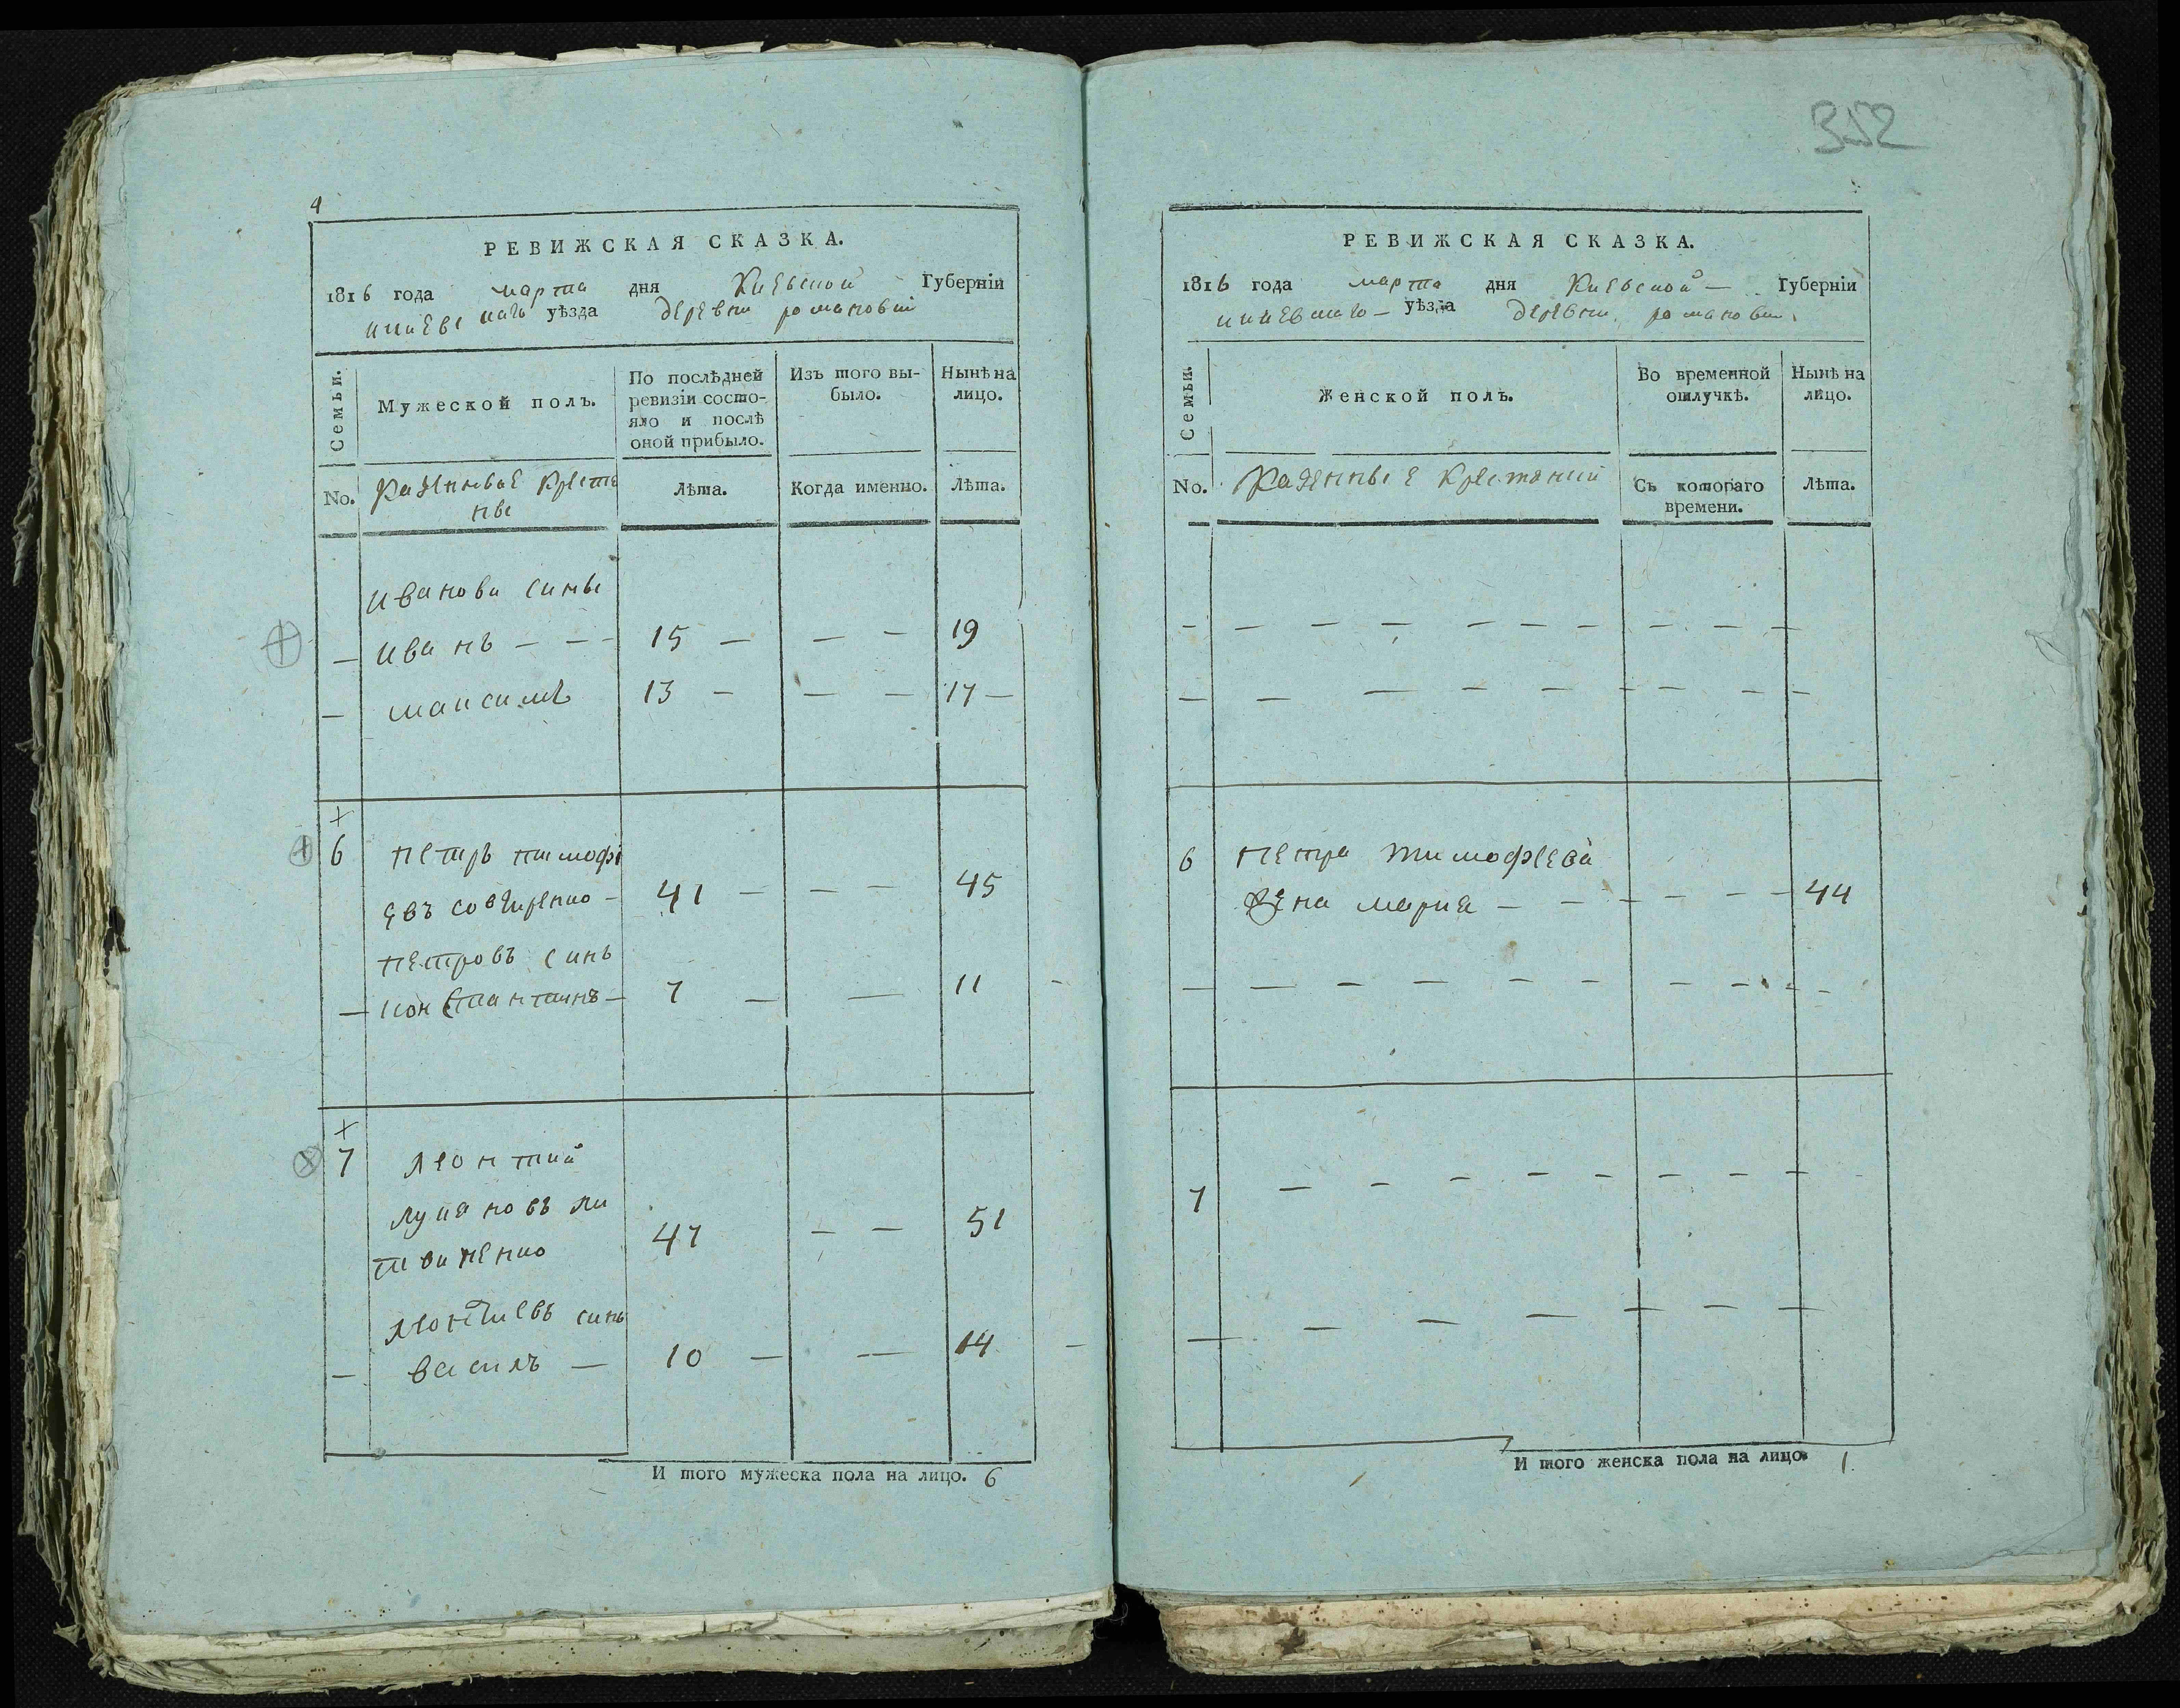 4
РЕВИЖСКАЯ СКАЗКА.
1816 года марта дня Киевской Губерніи
уѣзда деревни романовки
Семьи. Мужеской полъ. По послѣдней ревизіи состояло и послѣ оной прибыло. Изъ того выбыло. Нынѣ на лицо.
No. Казенные Крестя
не
Лѣта. Когда именно. Лѣта.
иванови сины
— иванъ — — — 15 — — — 19
— максимъ 13 — — — 17 —
6 петръ тимофе
евъ 41 — — — 45
петровъ синъ
— константинъ — 7 — — 11
7 леонтий
лукяновъ ли
твиненко 47 — — 51
леонтиевъ синъ
— василъ — 10 — — 14
И того мужеска пола на лицо. 6
352
РЕВИЖСКАЯ СКАЗКА.
1816 года марта дня Киевской — Губерніи
уѣзда деревни романовки
Семьи. Женской полъ. Во временной отлучкѣ. Нынѣ на лицо.
No. Казенные Крестяни Съ котораго времени. Лѣта.
6 петра тимофеева
жена мария — — — — — 44
7
И того женска пола на лицо. 1.